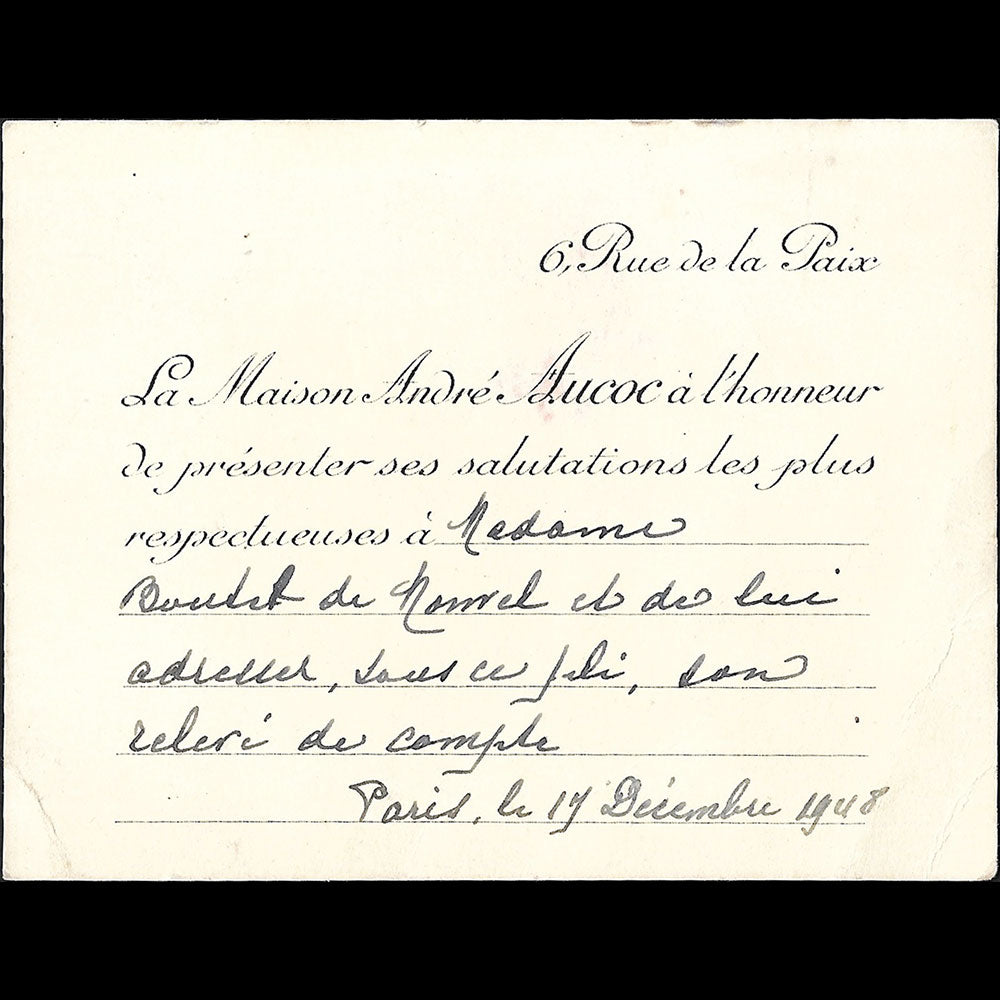 6, Rue de la Paix
La Maison André Aucoc à l'honneur
de présenter ses salutations les plus
respectueuses à Madame
Boutet de Monvel et de lui
adresser, sous ce pli, son
relevé de compte
Paris, le 17 Décembre 1948